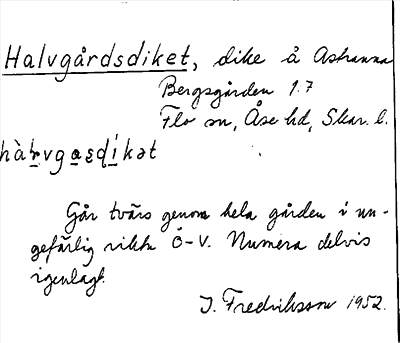 Halvgårdsdiket, dike å Astranna
Bergsgården 1.7
Flo sn, Åse hd, Skar. l.
Går tvärs genom hela gården i un-
gefärlig riktn Ö-V. Numera delvis
igenlagt.
I. Fredriksson 1952.